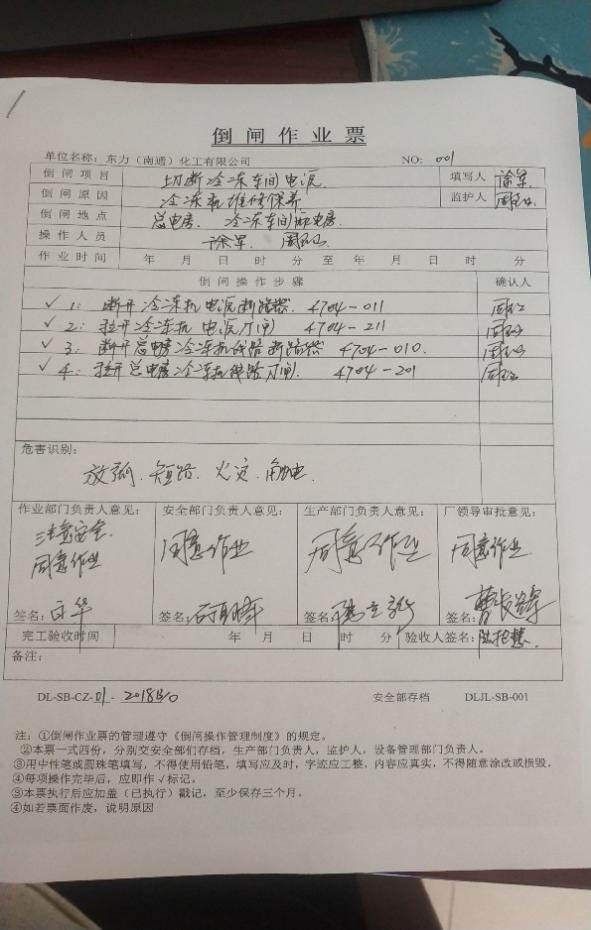 倒闸作业票
单位名称：东力（南通）化工有限公司 NO: 001
倒闸项目 切断冷冻车间电源. 填写人 涂军
倒闸原因 冷冻机维修保养 监护人
倒闸地点 总电房. 冷冻车间配电房.
操作人员 涂军.
作业时间 年 月 日 时 分 至 年 月 日 时 分
倒闸操作步骤 确认人
✓ 1: 断开冷冻机电源断路器. 4704-011
✓ 2: 拉开冷冻机电源刀闸 4704-211
✓ 3: 断开总电房冷冻机线路断路器 4704-010.
✓ 4: 拉开总电房冷冻机线路刀闸. 4704-201
危害识别：
放弧. 短路. 火灾. 触电.
作业部门负责人意见： 安全部门负责人意见： 生产部门负责人意见： 厂领导审批意见：
注意安全.
同意作业 同意作业 同意作业 同意作业
签名： 签名： 签名： 签名：
完工验收时间 年 月 日 时 分 验收人签名：
备注：
DL-SB-CZ-01-2018B/0 安全部存档 DLJL-SB-001
注：①倒闸作业票的管理遵守《倒闸操作管理制度》的规定。
②本票一式四份，分别交安全部们存档，生产部门负责人，监护人，设备管理部门负责人。
③用中性笔或圆珠笔填写，不得使用铅笔，填写应及时，字迹应工整，内容应真实，不得随意涂改或损毁。
④每项操作完毕后，应即作√标记。
③本票执行后应加盖（已执行）戳记，至少保存三个月。
④如若票面作废，说明原因